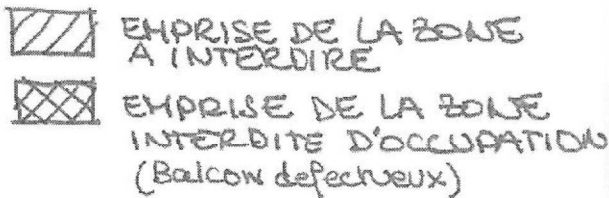 EMPRISE DE LA ZONE
A INTERDIRE
EMPRISE DE LA ZONE
INTERDITE D'OCCUPATION
(Balcon defectueux)